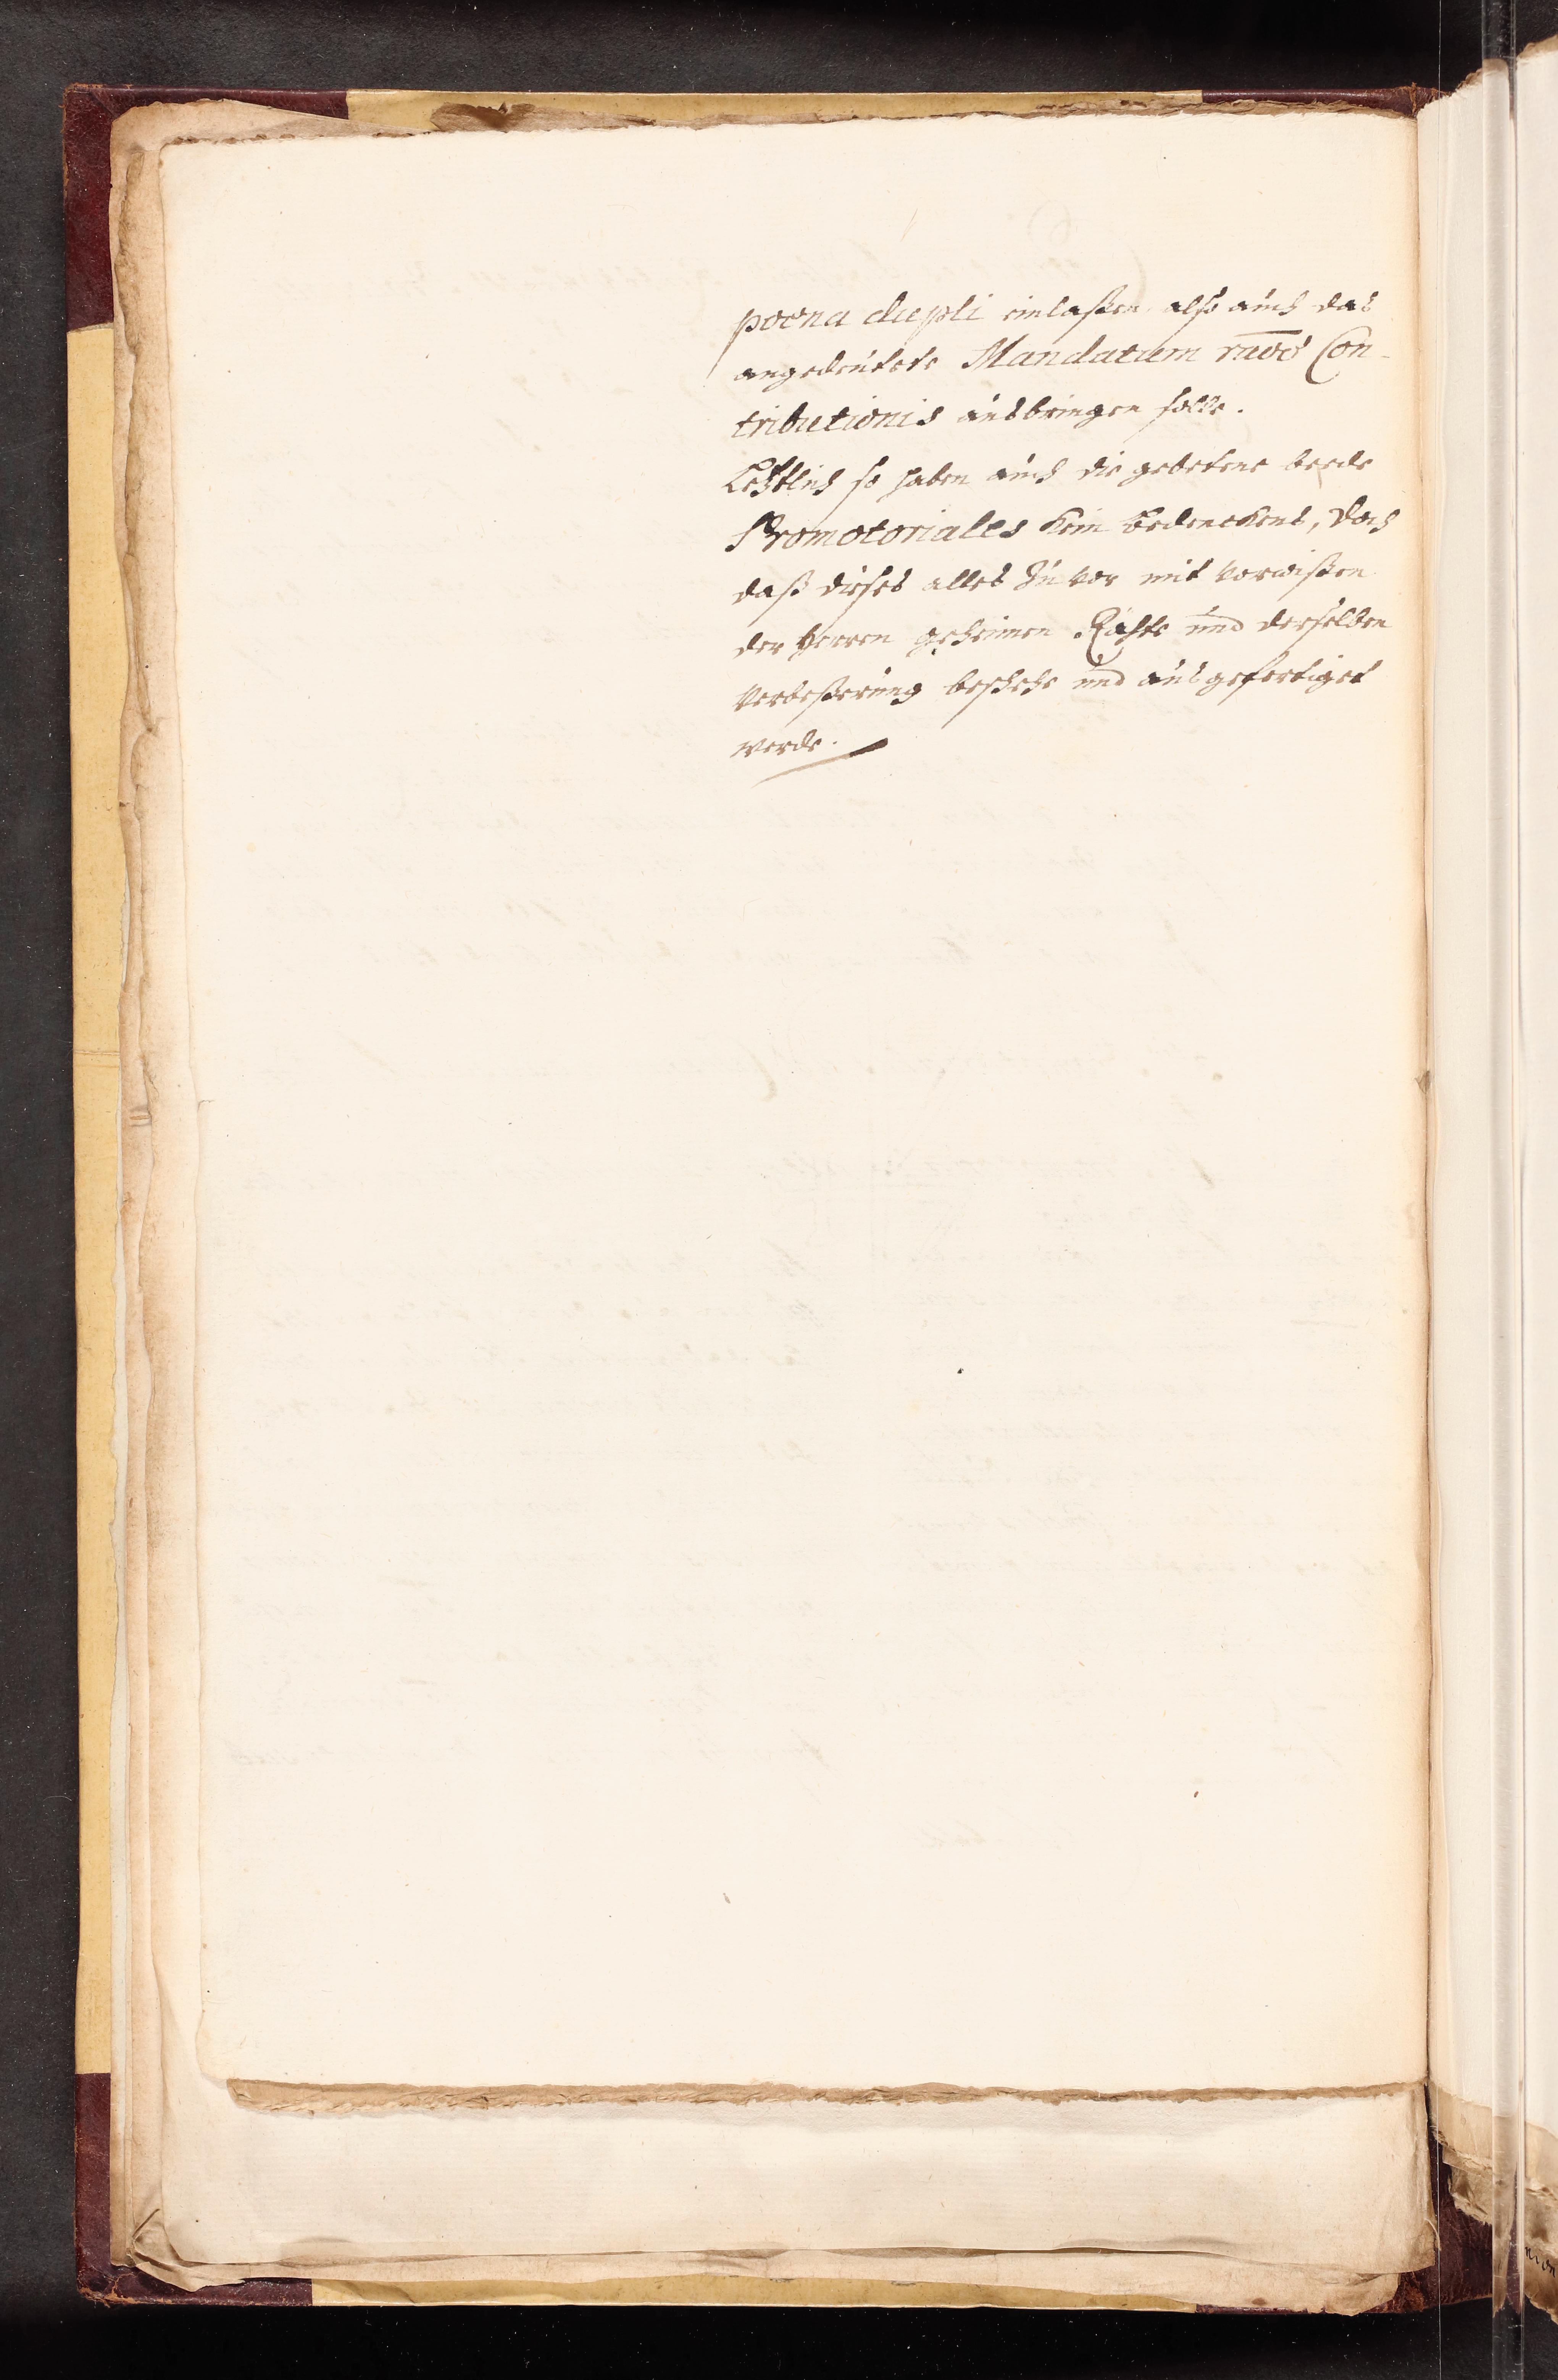 poena dupli einlaßen also auch das
angedeutete Mandatum raōē Con-
tributionis ausbringen solle.
Letztlich so haben auch die gebetene beede
Promotoriales kein bedenckens, doch
daß dieses alles zuvor mit vorwißen
der herren geheimen Räthe und derselben
verbeßerung beschehe und ausgefertiget
werde.